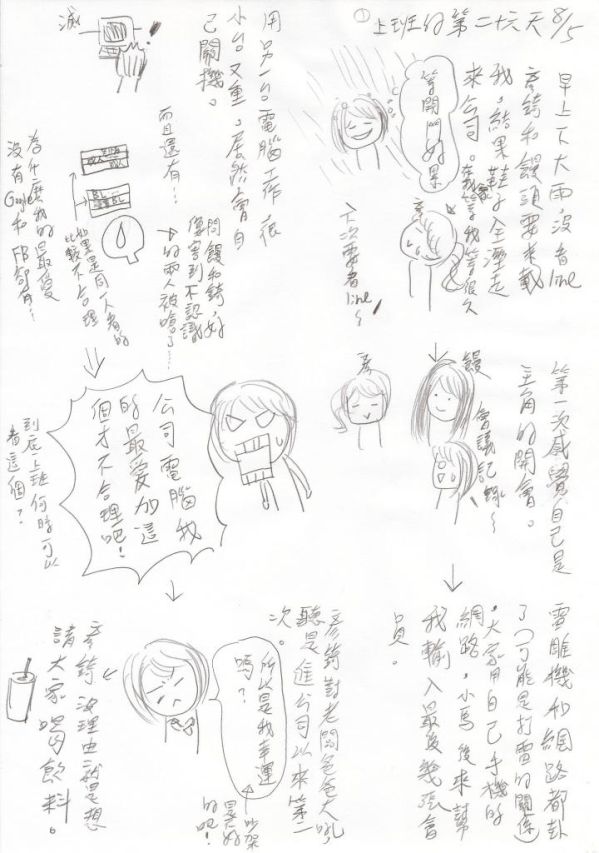 ①上班的第二十六天 8/5
早上下大雨，沒看line
彥錡和饅頭要來載
我，結果鞋子全溼走
來公司。
在我家等我等很久
管閒阿呆
下次要看line~
第一次感覺自己是
主角的開會。
饅
彥
會議記錄~
雷雕機和網路都卦
了（可能是打雷的關係）
。大家用自己手機的
網路，小馬後來幫
我輸入最後幾張會
員。
用另一台電腦工作，很
小台又重。居然會自
己關機。
滅
!
而且還有…
問饅和錡，好
像害到不認識
的兩人被嗆了……
如果是同一個人看的
比較不合理
為什麼我的最愛
沒有Google和
FB卻有…
公司電腦我
的最愛加這
個才不合理吧！
到底上班何時可以
看這個？
彥錡對老闆爸爸大吼
聽是進公司以來第二
次。
所以是我幸運
嗎？
吵架
是不好
的吧！
彥錡沒理由就是想
請大家喝飲料。